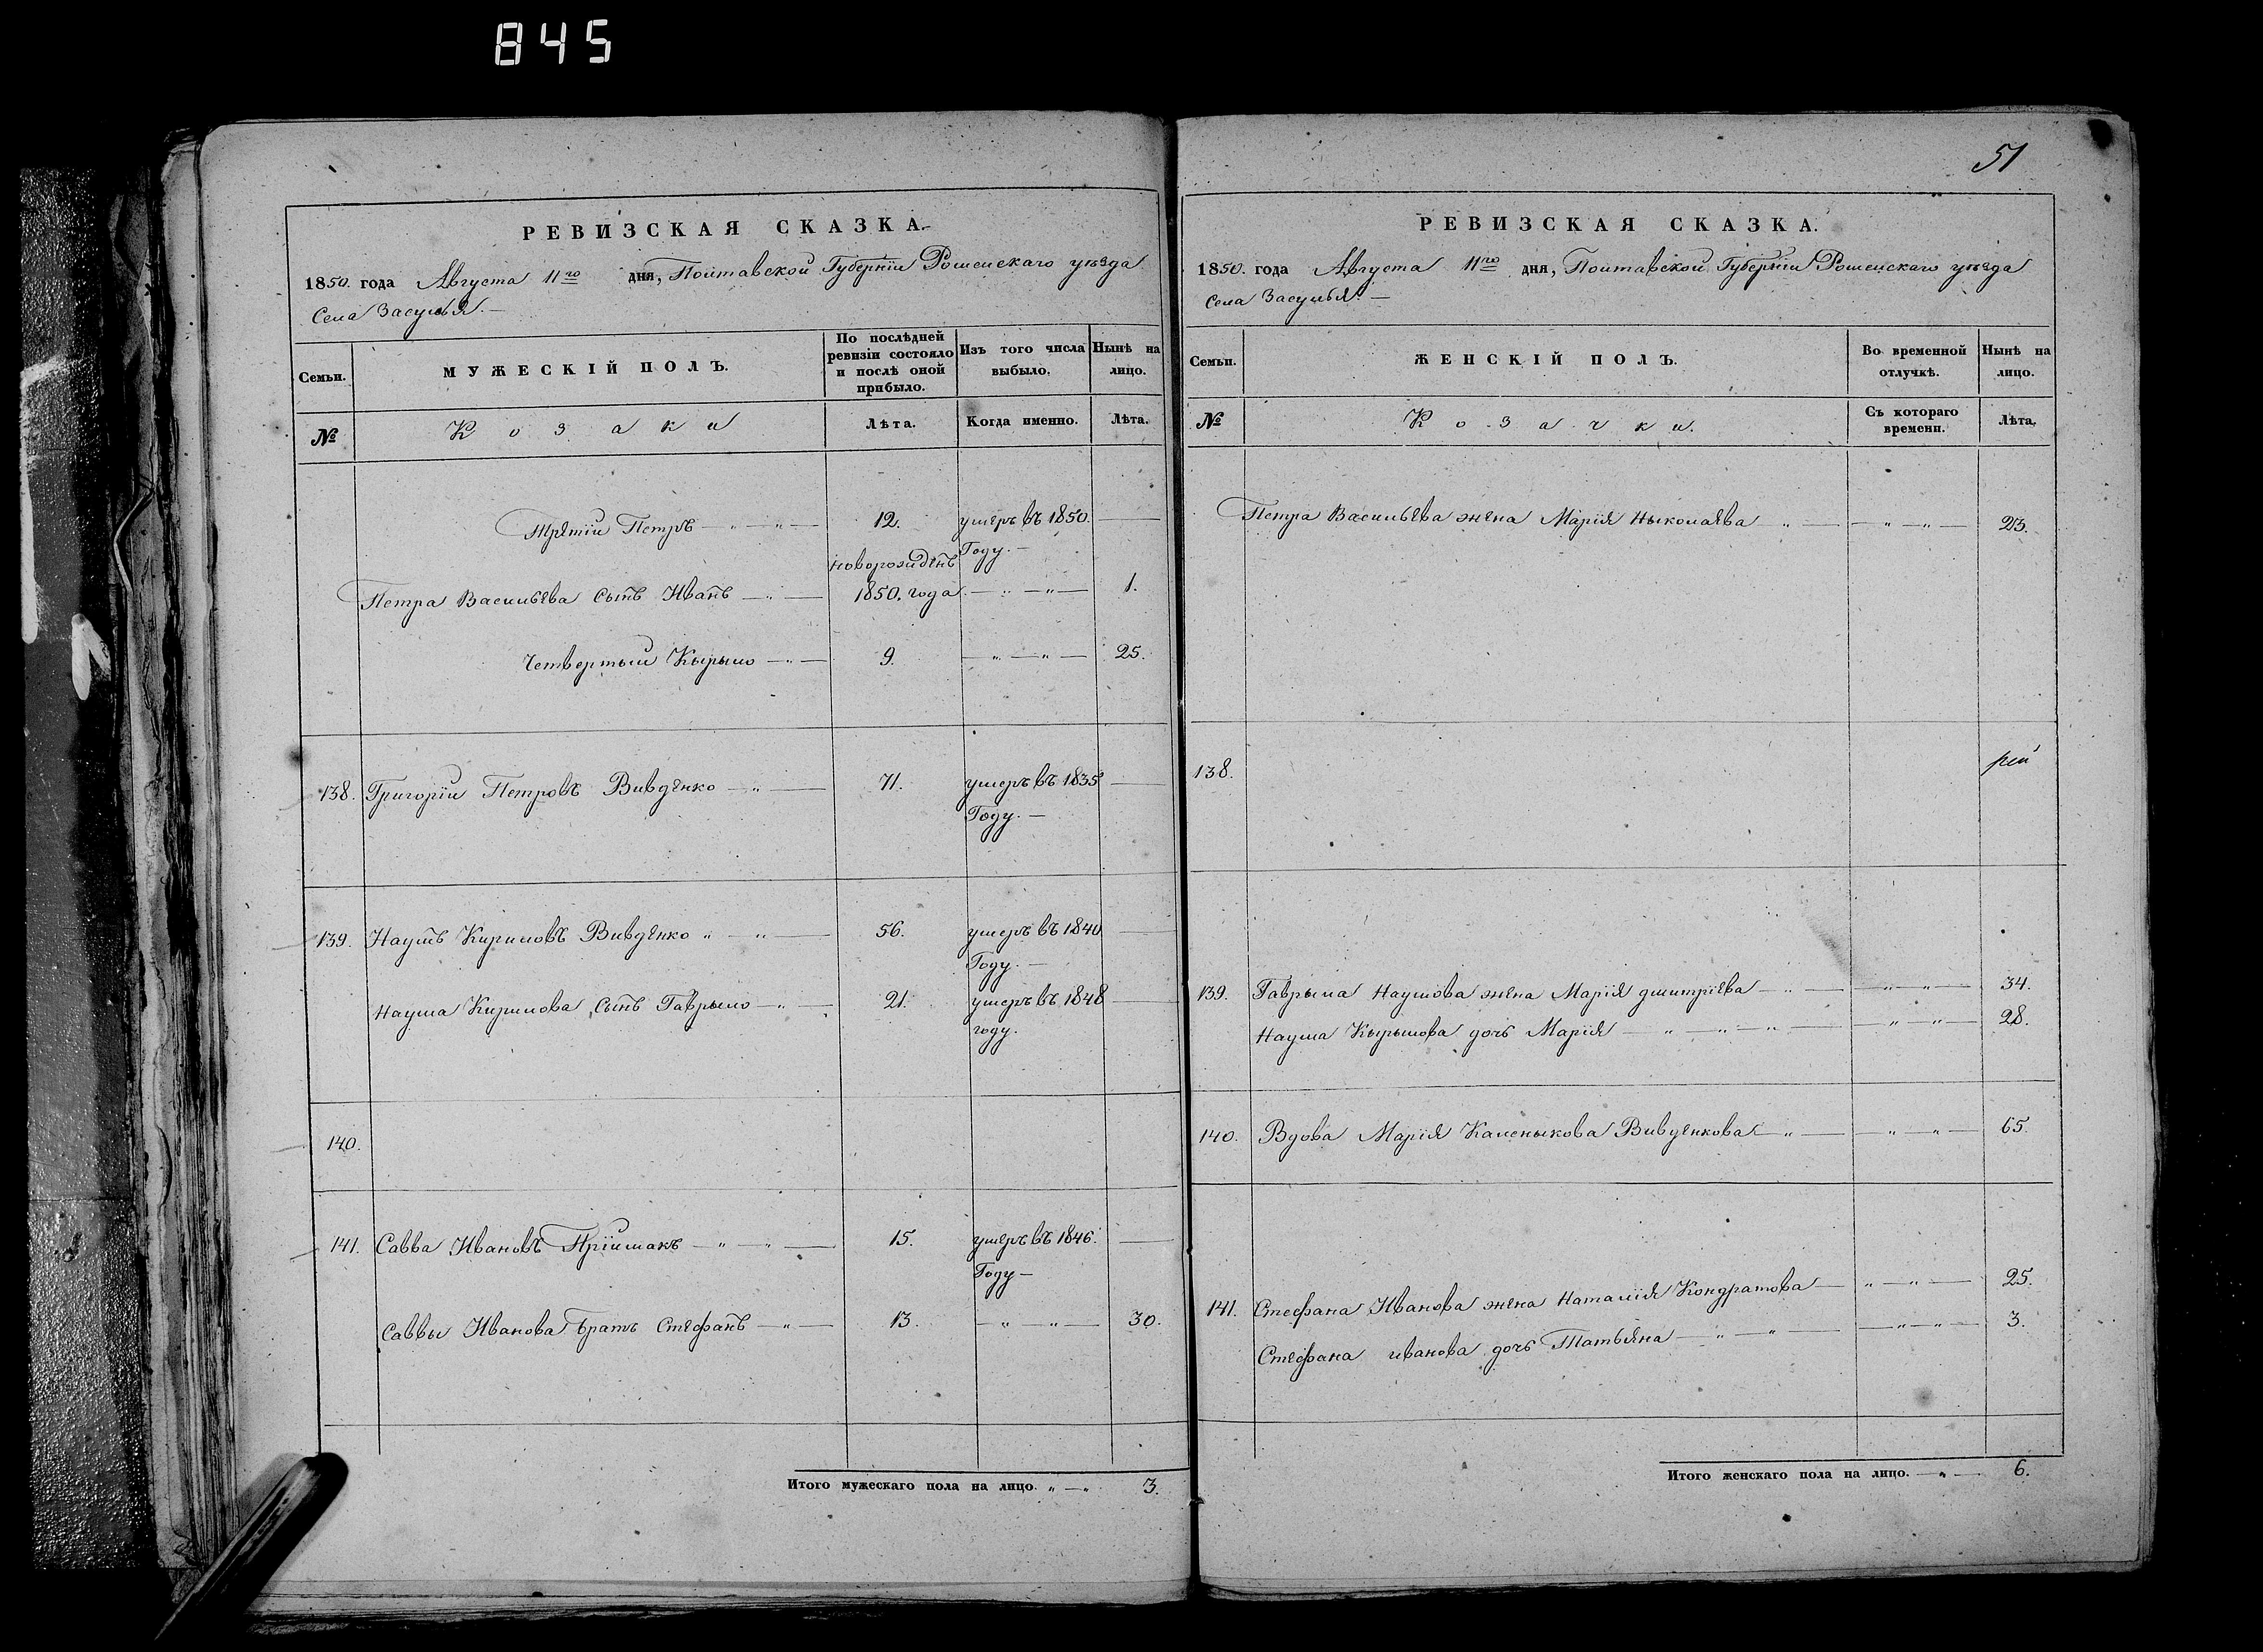 845
51
РЕВИЗСКАЯ СКАЗКА.
1850. года Августа 11го дня, Полтавской Губерніи Роменскаго уѣзда
Села Засулья. —
Семьи.
МУЖЕСКІЙ ПОЛЪ.
По послѣдней ревизіи состояло и послѣ оной прибыло.
Изъ того числа выбыло.
Нынѣ на лицо.
№
Козаки
Лѣта.
Когда именно.
Лѣта.
Третій Петръ — „ — „ — 12. умеръ въ 1850. —
Году. —
новорожденъ
Петра Васильева Сынъ Иванъ — „ — 1850. года — „ — „ — 1.
Четвертый Кырыло — „ — 9. — „ — „ — 25.
138. Григорій Петровъ Вивденко — „ — 71. умеръ въ 1835 —
Году. —
139. Наумъ Кириловъ Вивденко „ — „ — 56. умеръ въ 1840 —
Году. —
Наума Кирилова Сынъ Гаврыло — „ — 21. умеръ въ 1848 —
году.
140.
141. Савва Ивановъ Пріймакъ — „ — „ — 15. умеръ въ 1846. —
Году —
Саввы Иванова братъ Стефанъ — „ — 13. — „ — „ — 30.
Итого мужескаго пола на лицо. „ — „ 3.
РЕВИЗСКАЯ СКАЗКА.
1850. года Августа 11го дня, Полтавской Губерніи Роменскаго уѣзда
Села Засулья. —
Семьи.
ЖЕНСКІЙ ПОЛЪ.
Во временной отлучкѣ.
Нынѣ на лицо.
№
Козачки.
Съ котораго времени.
Лѣта.
Петра Васильева жена Марія Ныколаева „ — — „ — „ — 23.
138.
139. Гаврыла Наумова жена Марія дмитріева — „ — — „ — „ — 34.
Наума Кырылова дочь Марія — „ — „ — „ — — „ — „ — 28.
140. Вдова Марія Каленыкова Вивденкова — „ — — „ — „ — 65.
141. Стефана Иванова жена Наталія Кондратова — „ — „ — 25.
Стефана иванова дочь Татьяна — „ — „ — — „ — „ — 3.
Итого женскаго пола на лицо. — „ — 6.